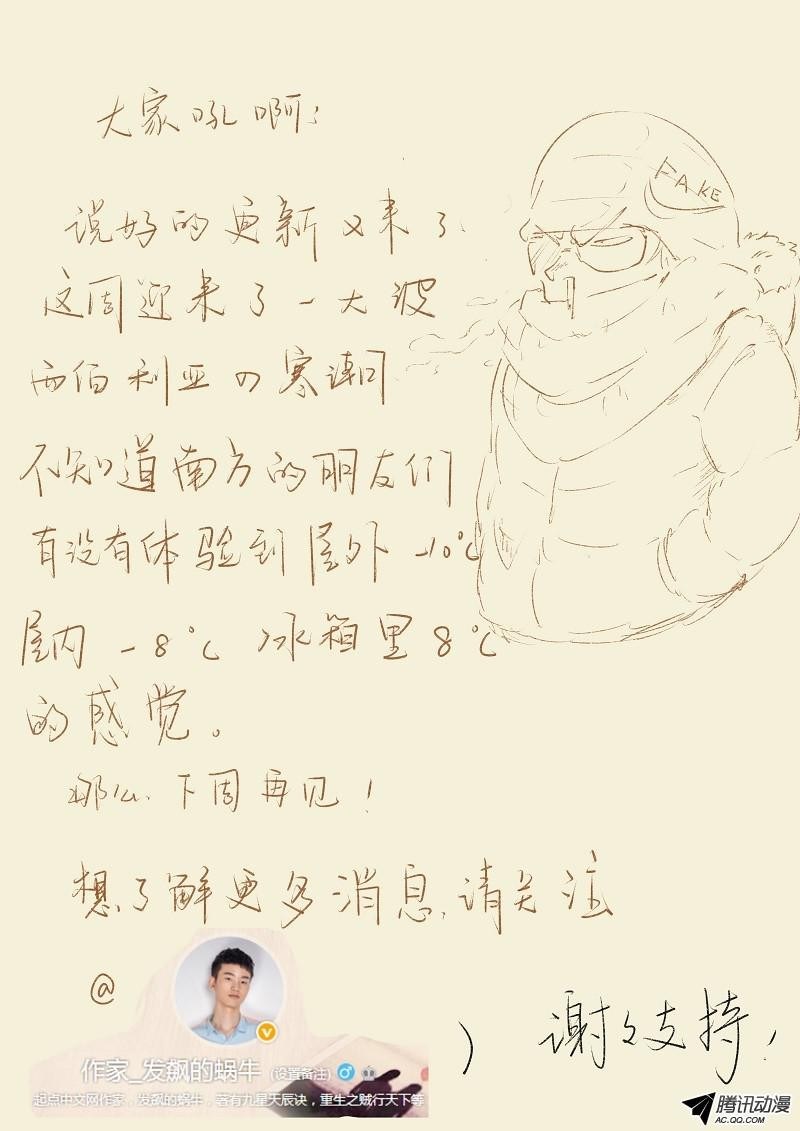 大家吼啊:
FAKE
说好的更新又来了.
这周迎来了一大波
西伯利亚の寒潮
不知道南方的朋友们
有没有体验到屋外-10℃
屋内-8℃ 冰箱里8℃
的感觉。
那么、下周再见!
想了解更多消息,请关注
@
作家_发飙的蜗牛 (设置备注)
起点中文网作家,发飙的蜗牛,著有九星天辰诀,重生之贼行天下等
谢々支持!
腾讯动漫
AC.QQ.COM